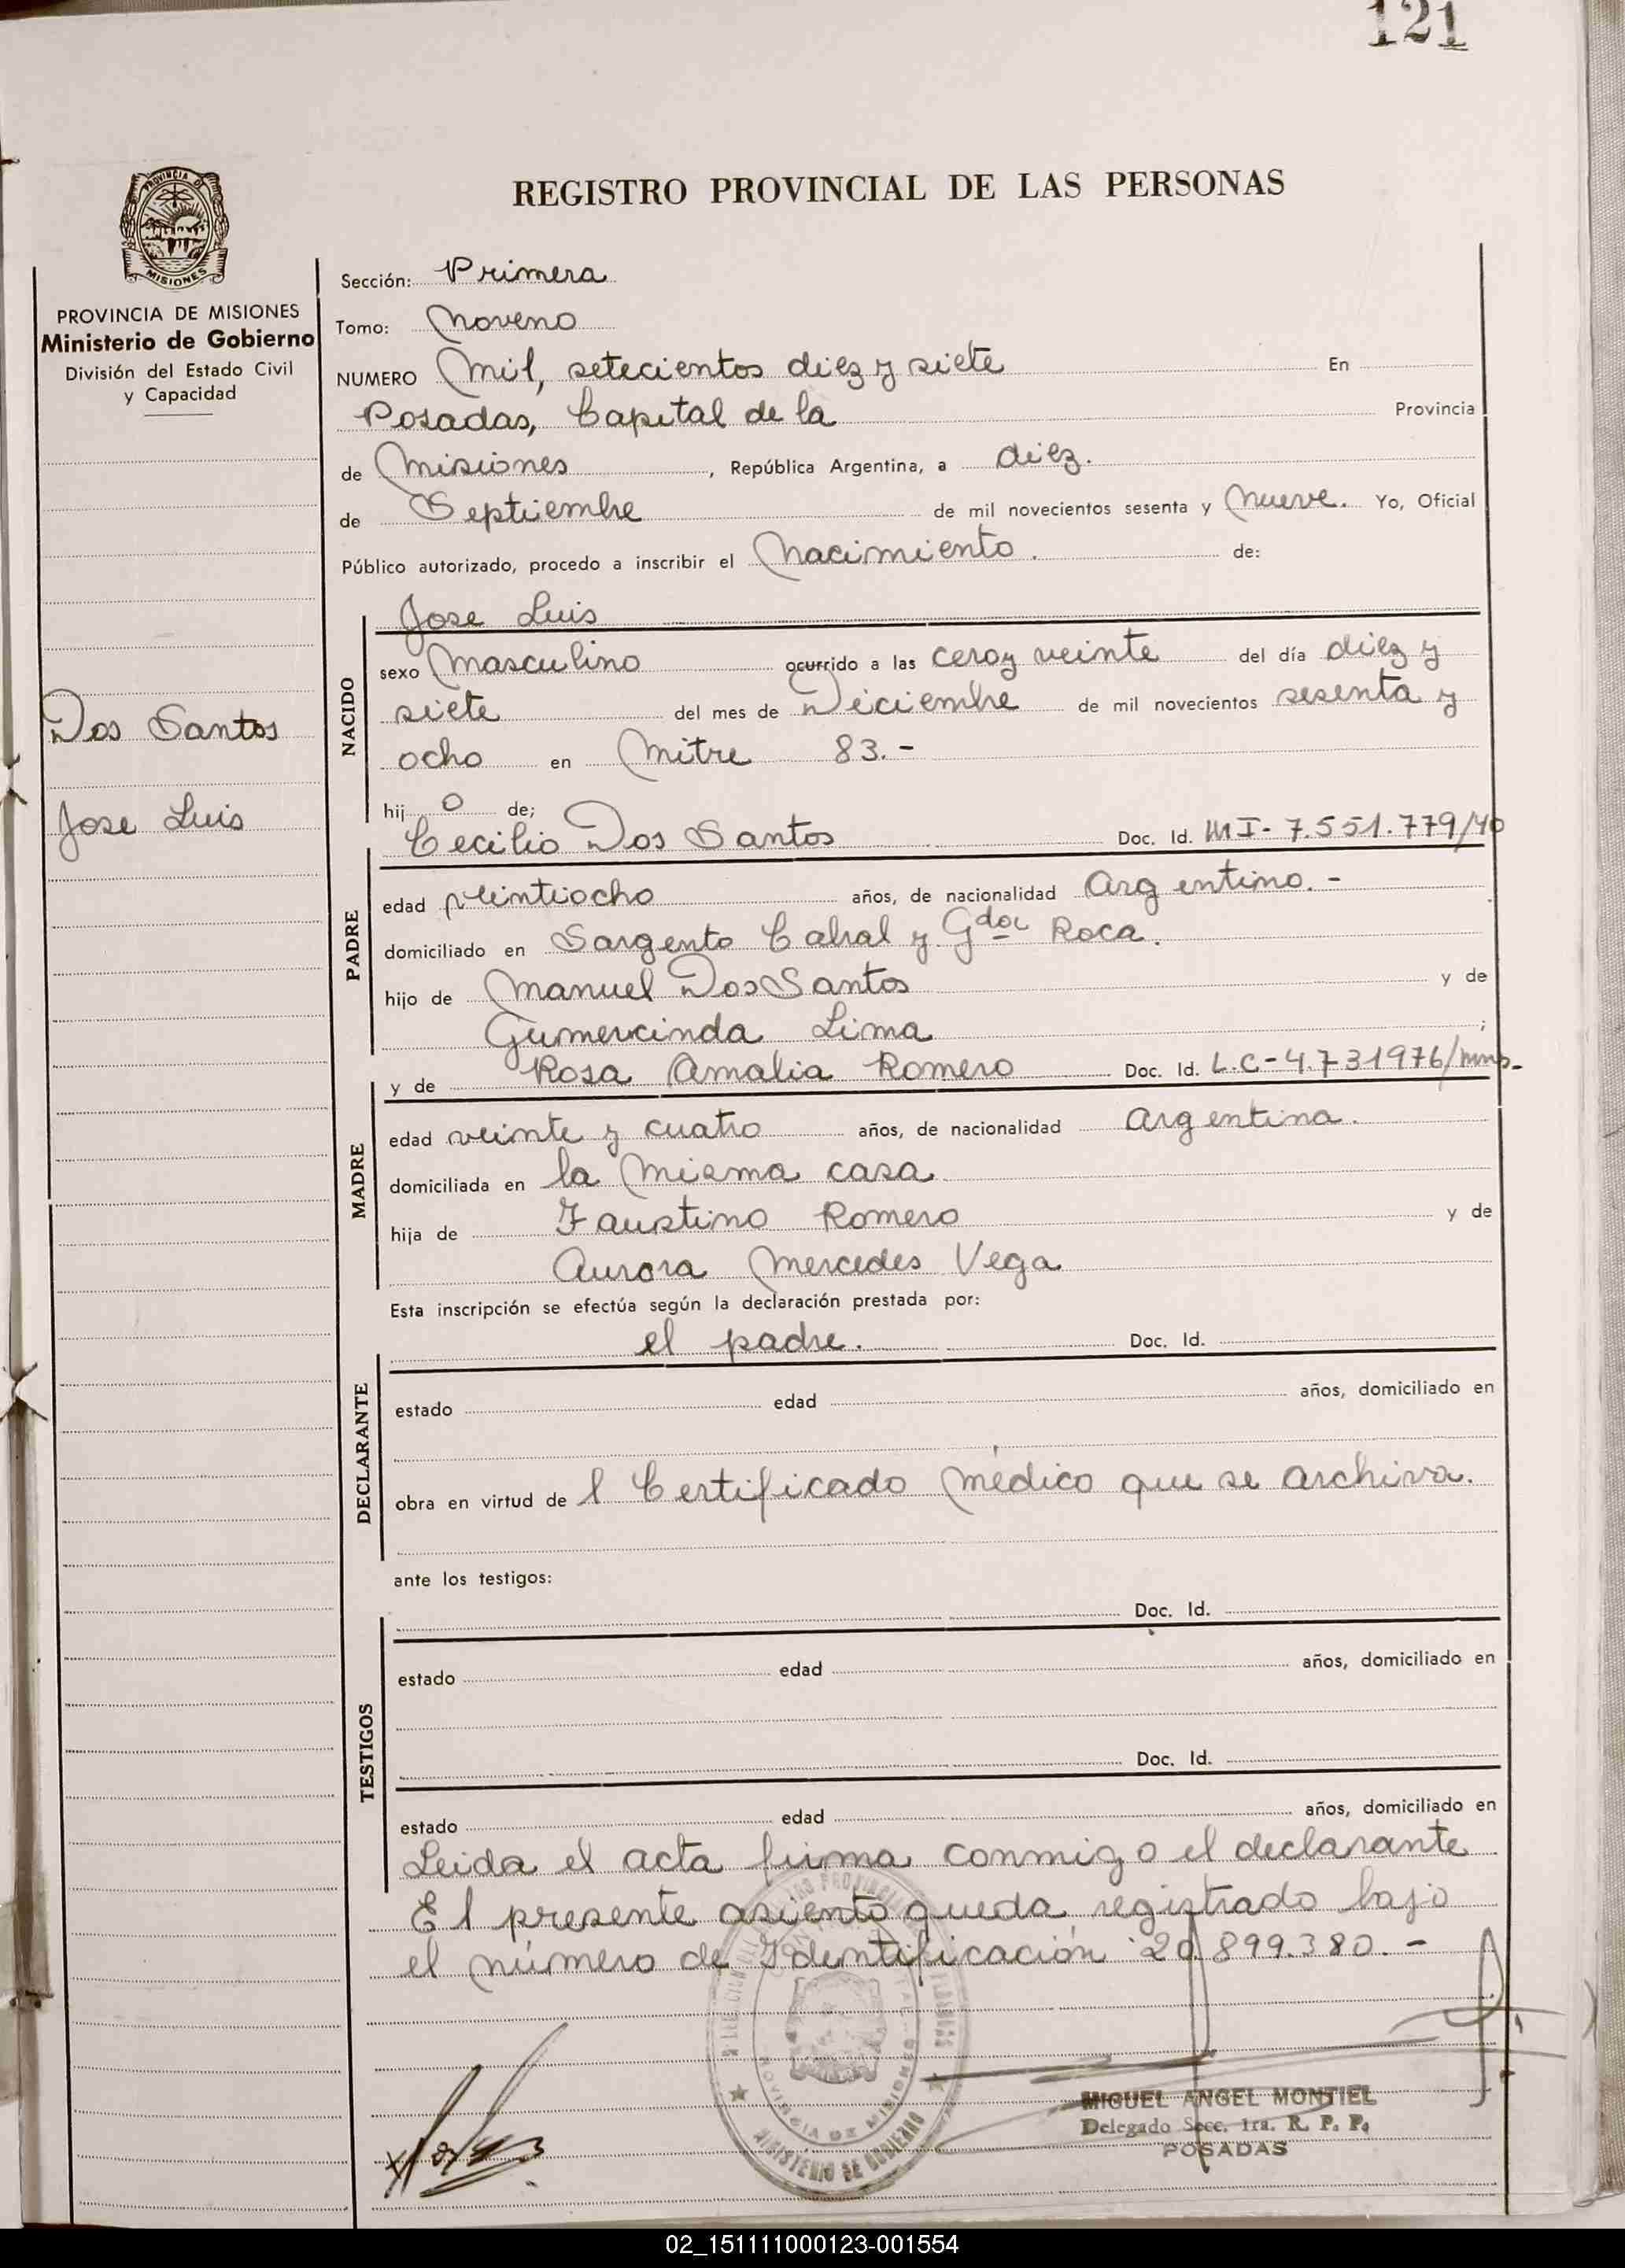 121
REGISTRO PROVINCIAL DE LAS PERSONAS
PROVINCIA DE MISIONES
PROVINCIA DE MISIONES
Ministerio de Gobierno
División del Estado Civil
y Capacidad
Dos Santos
Jose Luis
Sección: Primera
Tomo: Noveno
NUMERO Mil, setecientos diez y siete En
Posadas, Capital de la Provincia
de Misiones, República Argentina, a diez.
de Septiembre de mil novecientos sesenta y Nueve. Yo, Oficial
Público autorizado, procedo a inscribir el Nacimiento. de:
NACIDO
Jose Luis
sexo Masculino ocurrido a las cero y veinte del día diez y
siete del mes de Diciembre de mil novecientos sesenta y
ocho en Mitre 83.-
hijo de;
PADRE
Cecilio Dos Santos Doc. Id. MI- 7.551.779/40
edad veintiocho años, de nacionalidad Argentino.-
domiciliado en Sargento Cabral y Gdor Roca.
hijo de Manuel Dos Santos y de
Gumercinda Lima ;
MADRE
y de Rosa Amalia Romero Doc. Id. L.C-4.731976/mns.
edad veinte y cuatro años, de nacionalidad Argentina.
domiciliada en la Misma casa
hija de Faustino Romero y de
Aurora Mercedes Vega
Esta inscripción se efectúa según la declaración prestada por:
DECLARANTE
el padre. Doc. Id.
estado edad años, domiciliado en
obra en virtud de l Certificado Médico que se archiva.
ante los testigos:
TESTIGOS
Doc. Id.
estado edad años, domiciliado en
Doc. Id.
estado edad años, domiciliado en
Leida el acta firma conmigo el declarante
El presente asiento queda registrado bajo
el número de Identificación 20.899.380.-
PROVINCIA DE MISIONES
MINISTERIO DE GOBIERNO
MIGUEL ANGEL MONTIEL
Delegado Secc. 1ra. R. P. P.
POSADAS
02_151111000123-001554